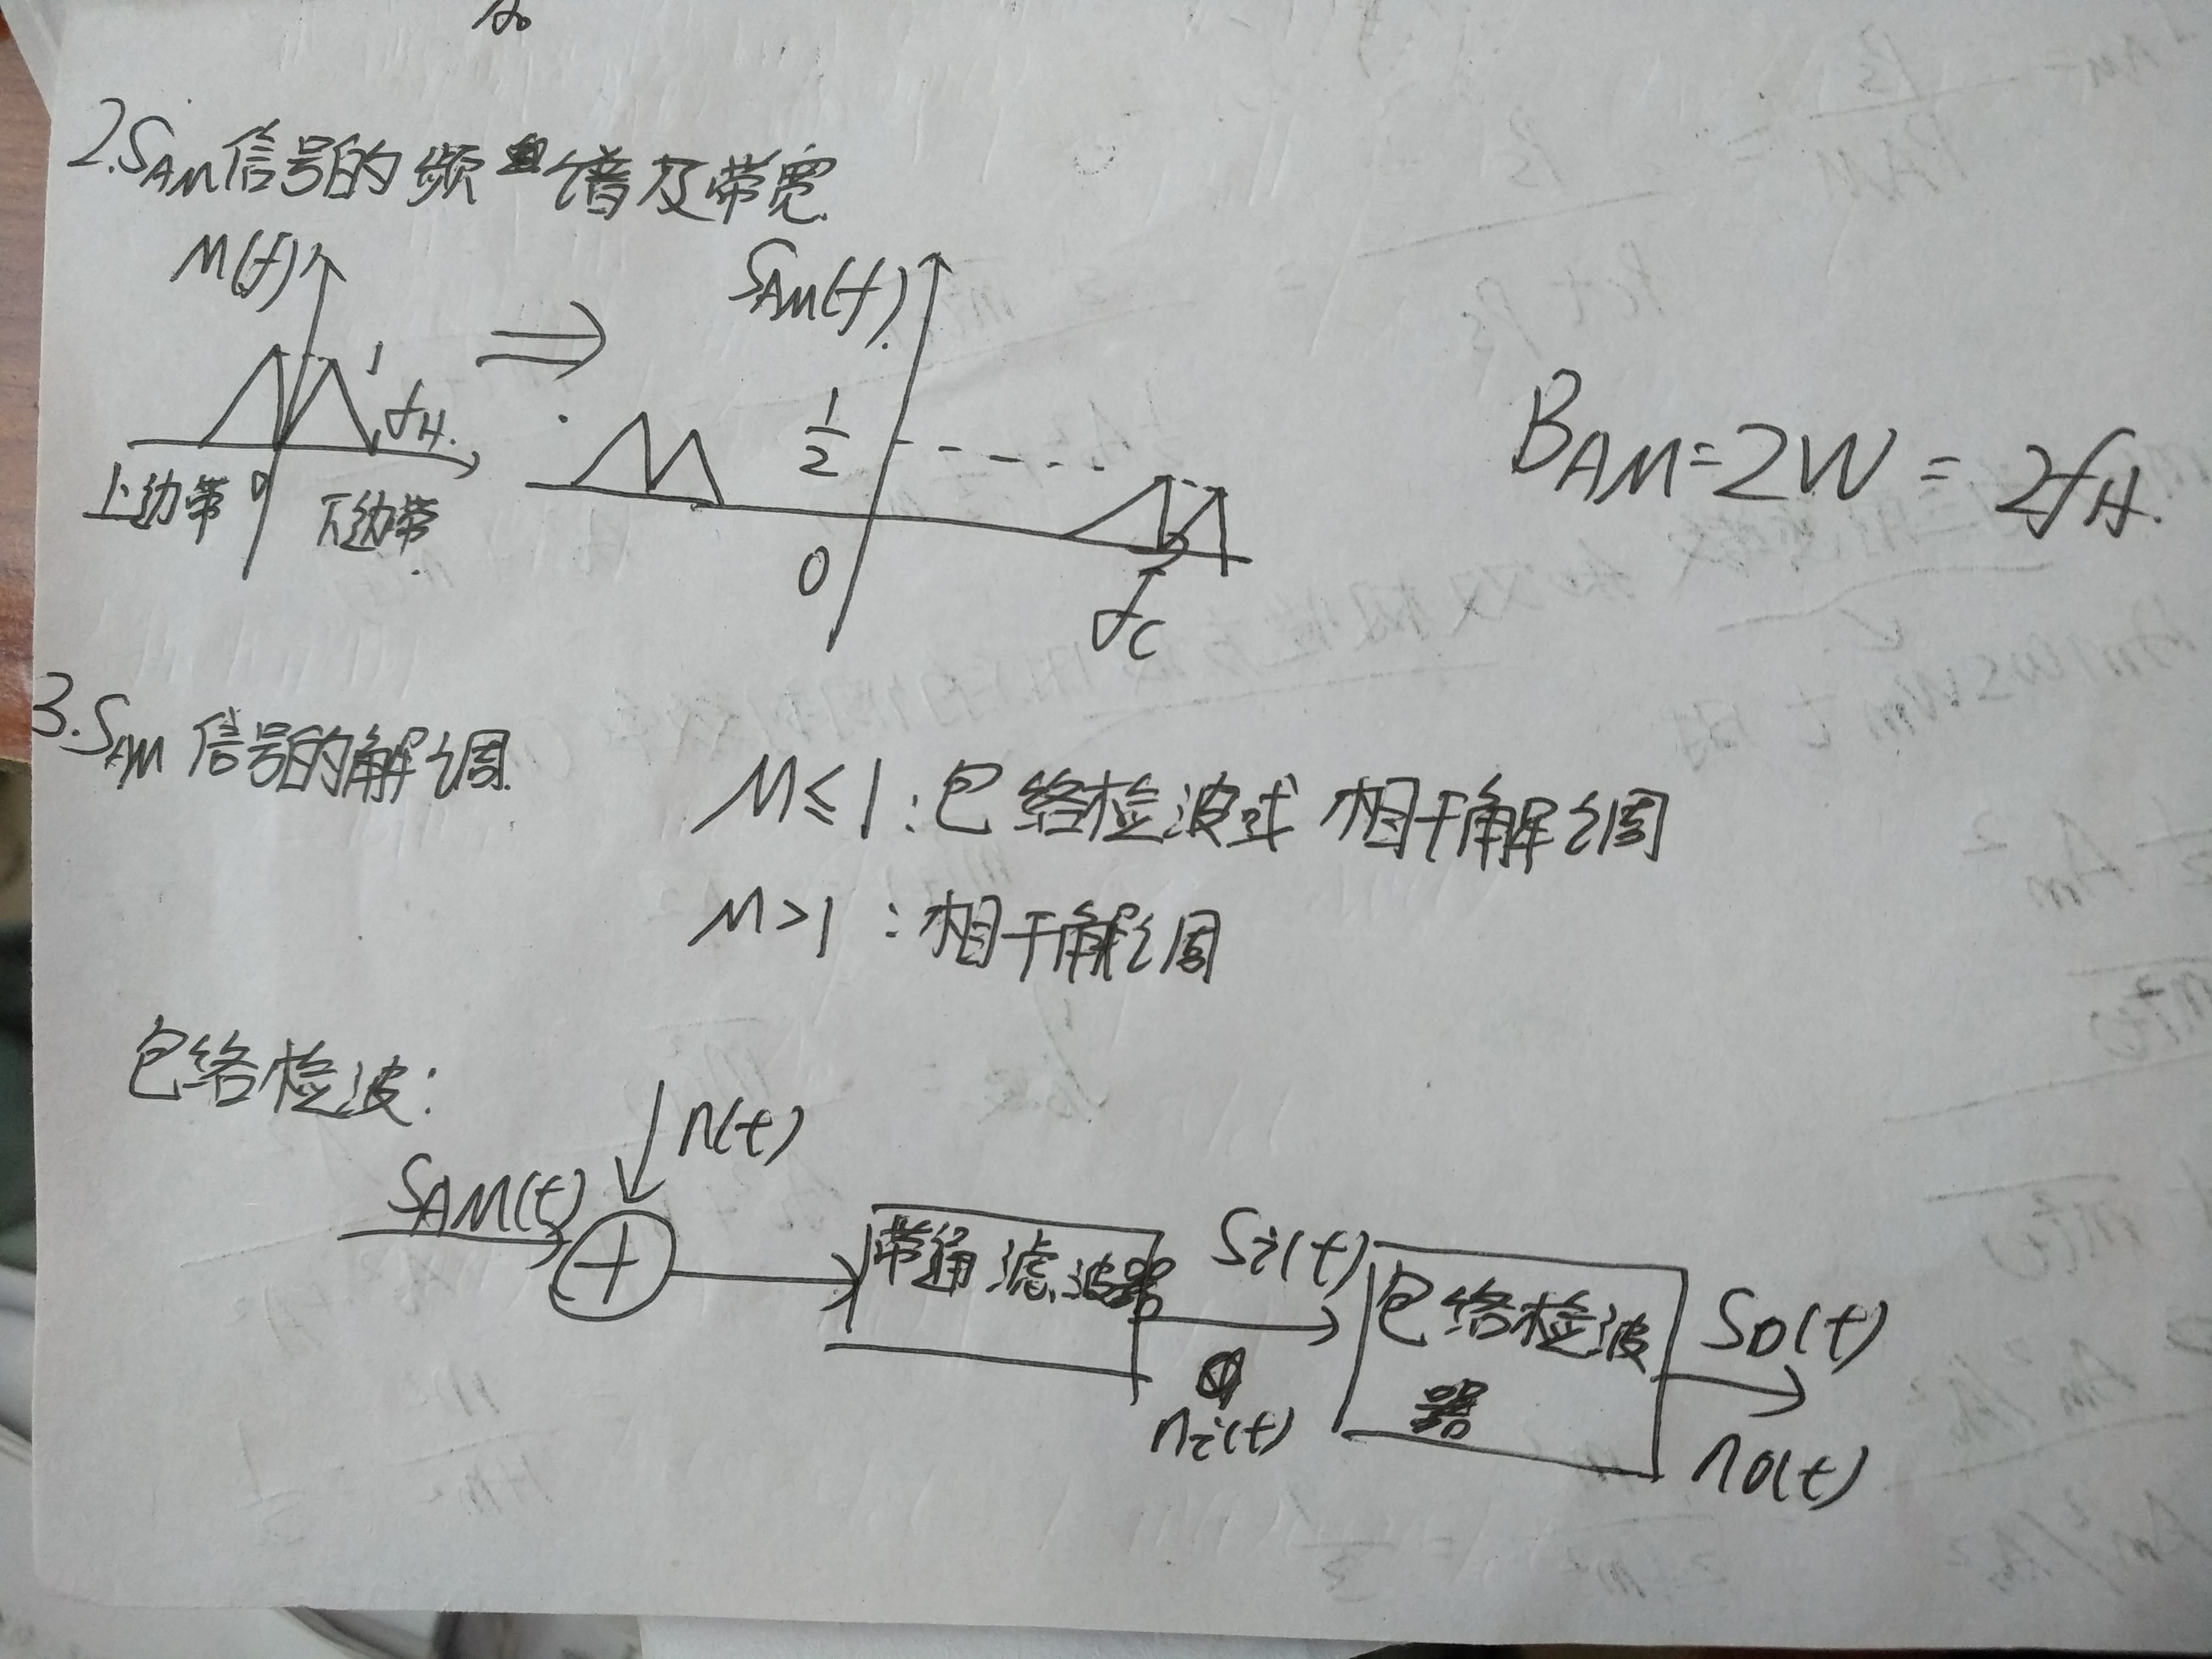 2. S_AM信号的频谱及带宽.
M(f)
1
f_H.
上边带 0 下边带.
⇒
S_AM(f).
1/2
0
f_C
B_AM=2W=2f_H.
3. S_AM信号的解调.
M≤1:包络检波或相干解调
M>1:相干解调
包络检波:
S_AM(t)
n(t)
+
带通滤波器
S_i(t)
n_i(t)
包络检波
器
S_0(t)
n_0(t)